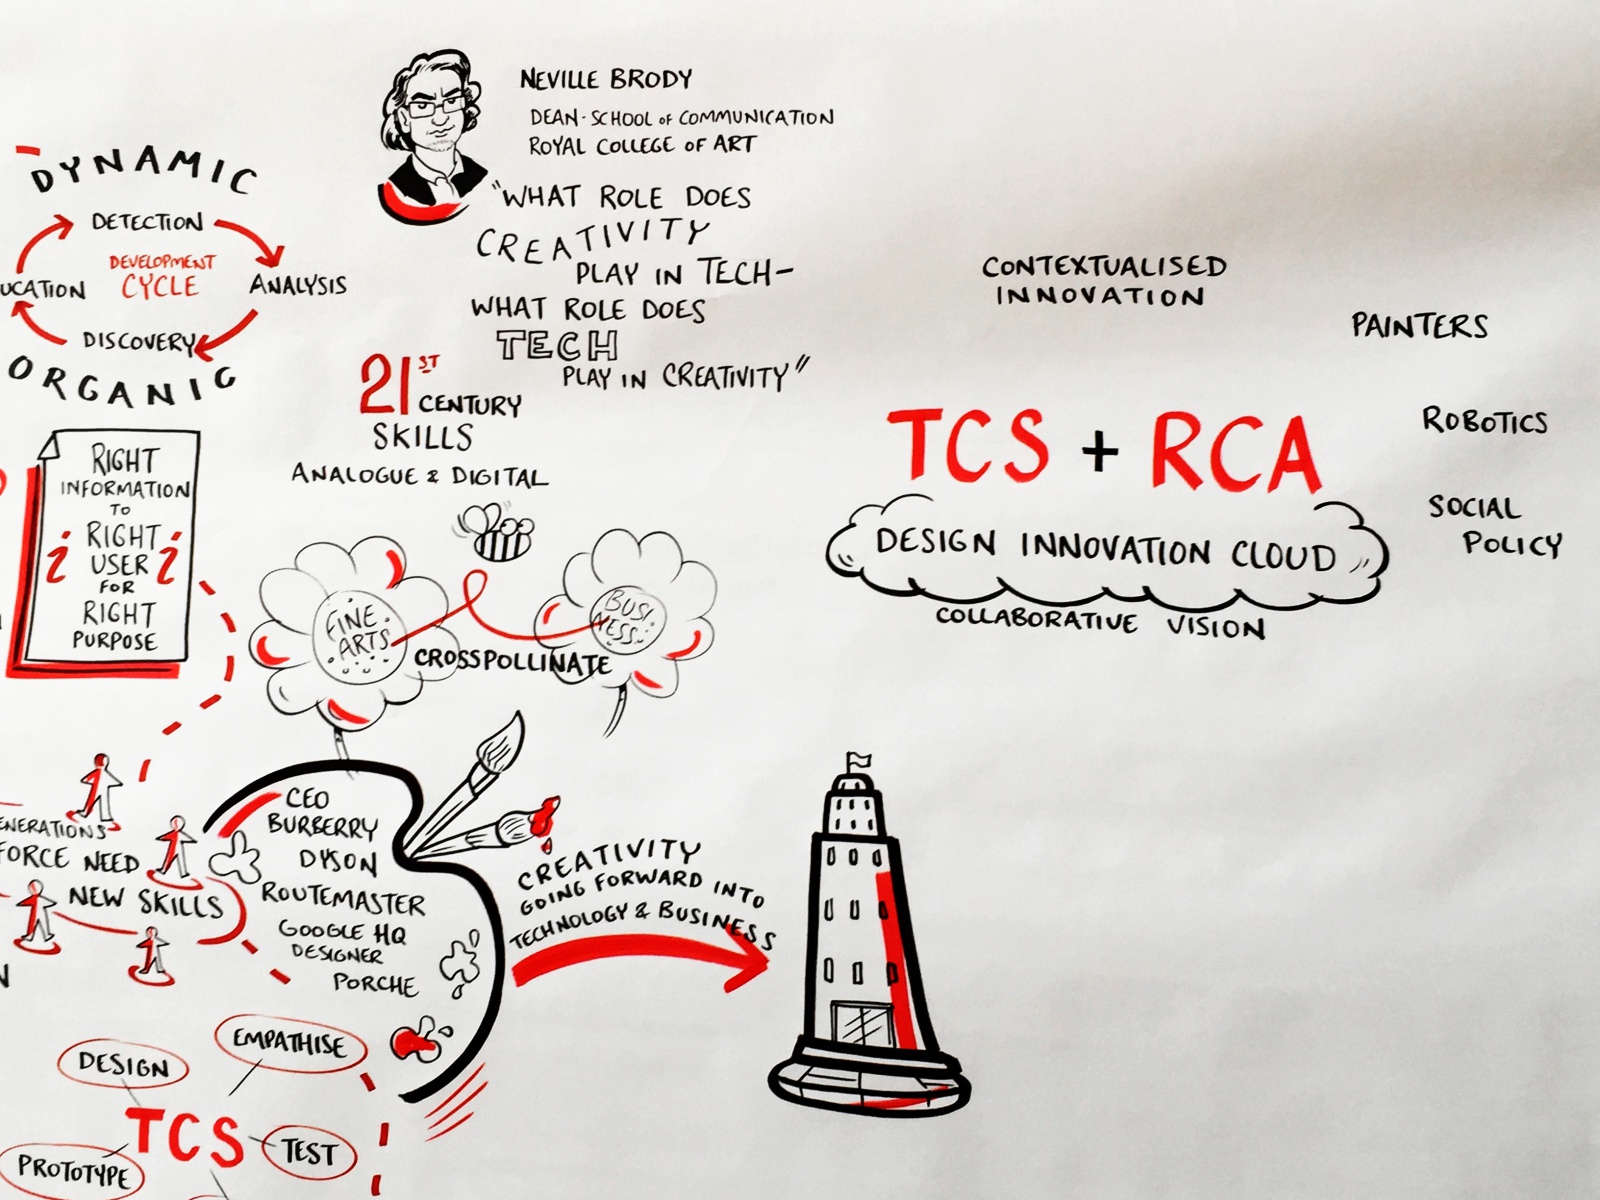 NEVILLE BRODY
DEAN · SCHOOL OF COMMUNICATION
ROYAL COLLEGE OF ART
"WHAT ROLE DOES
CREATIVITY
PLAY IN TECH-
WHAT ROLE DOES
TECH
PLAY IN CREATIVITY"
DYNAMIC
DETECTION
DEVELOPMENT
CYCLE
ANALYSIS
UCATION
DISCOVERY
ORGANIC
21ST
CENTURY
SKILLS
ANALOGUE & DIGITAL
RIGHT
INFORMATION
TO
i RIGHT i
USER
FOR
RIGHT
PURPOSE
FINE
ARTS
BUSI
NESS
CROSSPOLLINATE
CONTEXTUALISED
INNOVATION
PAINTERS
ROBOTICS
SOCIAL
POLICY
TCS + RCA
DESIGN INNOVATION CLOUD
COLLABORATIVE VISION
ENERATIONS
FORCE NEED
NEW SKILLS
CEO
BURBERRY
DYSON
ROUTEMASTER
GOOGLE HQ
DESIGNER
PORCHE
CREATIVITY
GOING FORWARD INTO
TECHNOLOGY & BUSINESS
DESIGN
EMPATHISE
TCS
TEST
PROTOTYPE